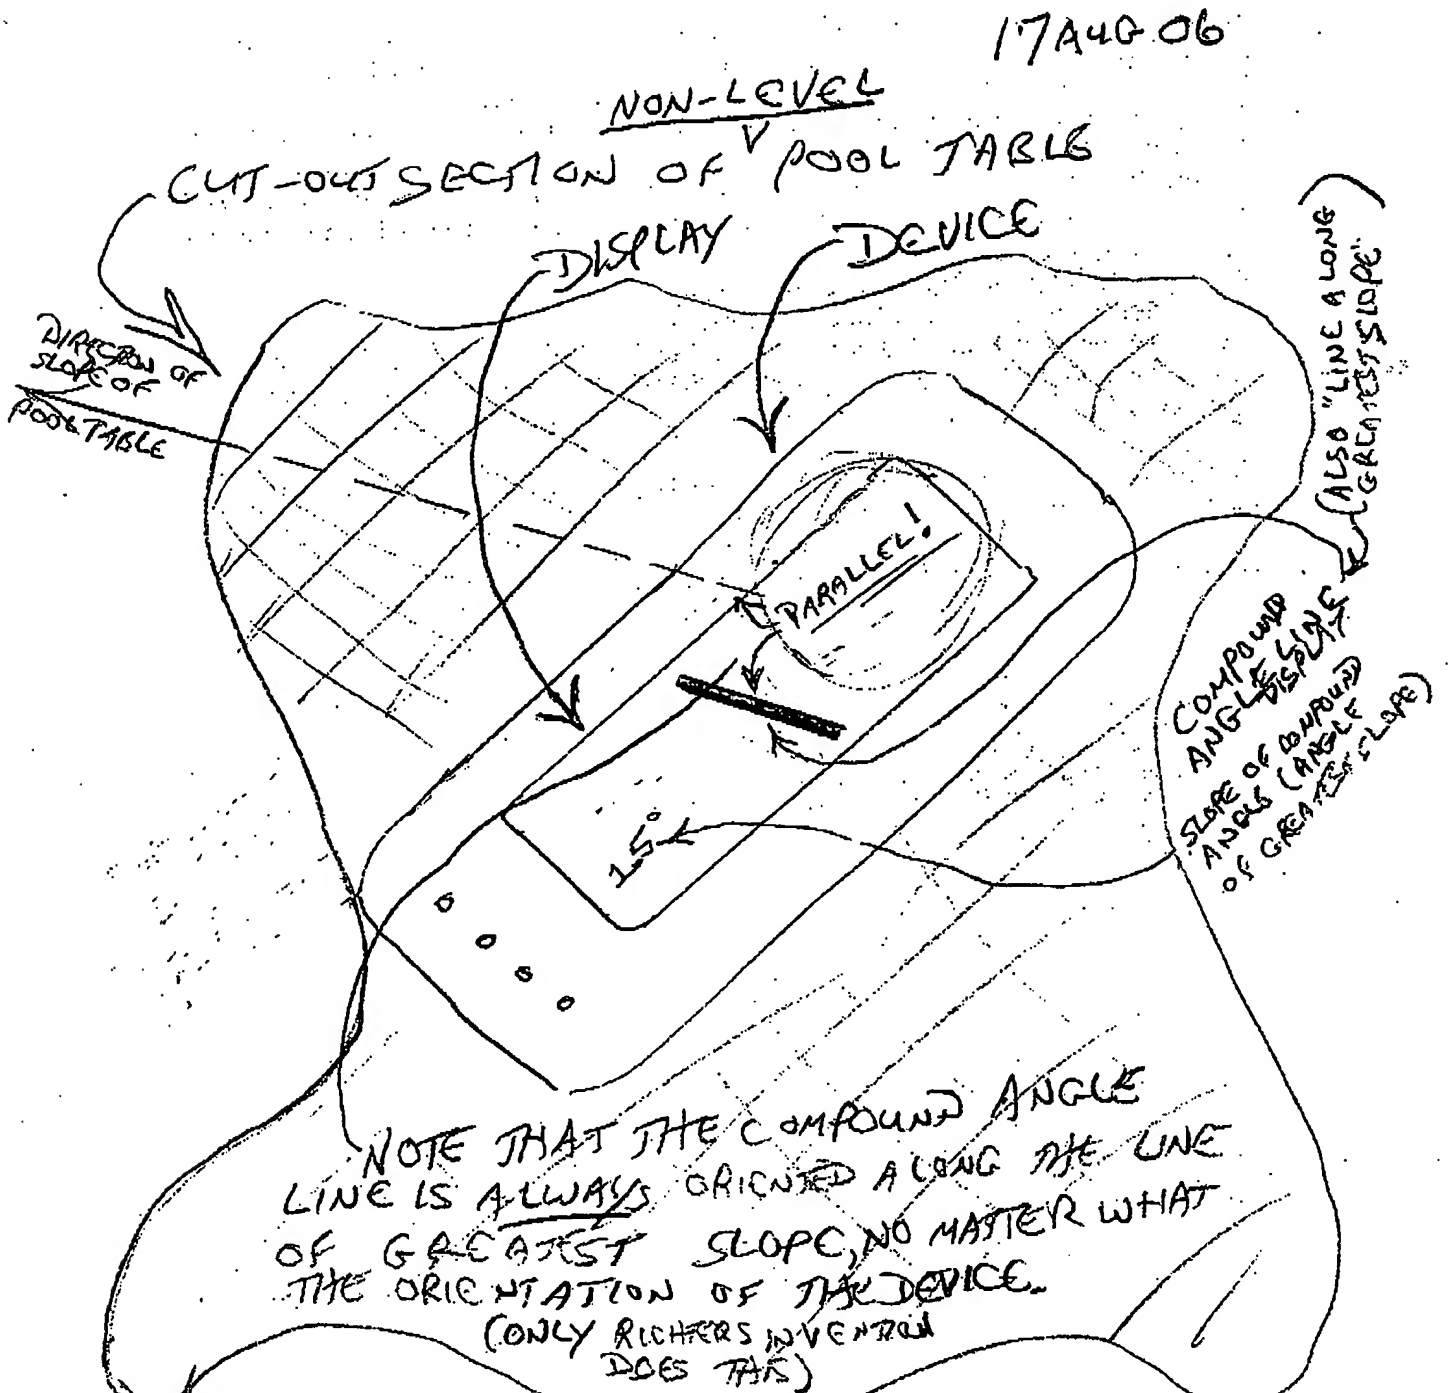 17 AUG 06
NON-LEVEL
CUT-OUT SECTION OF POOL TABLE
DISPLAY
DEVICE
DIRECTION OF
SLOPE OF
POOL TABLE
(ALSO "LINE ALONG
GREATEST SLOPE")
PARALLEL!
COMPOUND
ANGLE LINE
DISPLAY
SLOPE OF COMPOUND
ANGLE (ANGLE
OF GREATEST SLOPE)
1.5°
NOTE THAT THE COMPOUND ANGLE
LINE IS ALWAYS ORIENTED ALONG THE LINE
OF GREATEST SLOPE, NO MATTER WHAT
THE ORIENTATION OF THE DEVICE.
(ONLY RICHTERS INVENTION
DOES THIS)